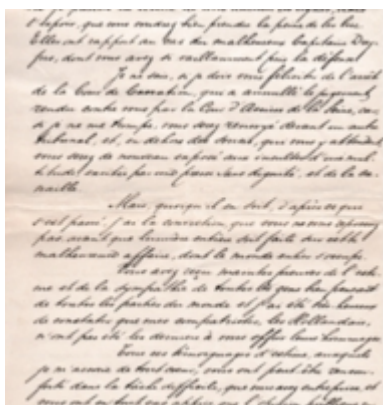 et espère, que vous voudrez bien prendre la peine de les lire.
Elles ont rapport au cas du malheureux Capitaine Drey-
fus, dont vous avez si vaillamment pris la défense.
Je ne sais, si je dois vous féliciter de l'arrêt
de la Cour de Cassation, qui a annullé le jugement,
rendu contre vous par la Cour d'Assises de la Seine, car,
si je ne me trompe, vous serez renvoyé devant un autre
tribunal, et, en dehors des soucis, que vous y attendent,
vous serez de nouveau exposé aux insultes d'une mul-
titude excitée par une presse sans dignité, et de la ca-
naille.
Mais, quoiqu'il en soit, d'après ce que
s'est passé, j'ai la conviction, que vous ne vous reposerez
pas, avant que lumière entière soit faite dans cette
malheureuse affaire, dont le monde entier s'occupe.
Vous avez reçu maintes preuves de l'esti-
me et de la sympathie de toutes les gens bien pensant
de toutes les parties du monde et j'ai été très heureux
de constater que mes compatriotes, les Hollandais,
n'ont pas été les derniers à vous offrir leurs hommages.
Tous ces témoignages d'estime, auxquels
je m'associe de tout cœur, vous ont peut être récon-
forté dans la tâche difficile, que vous avez entreprise, et